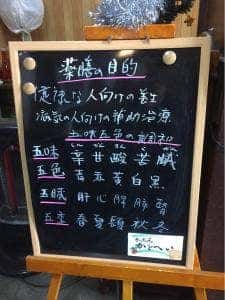 薬膳の目的
健康な人向けの養生
病気の人向けの補助治療
五味五色の調和
五味 辛甘酸苦鹹
五色 青赤黄白黒
五臓 肝心脾肺腎
五季 春夏秋冬